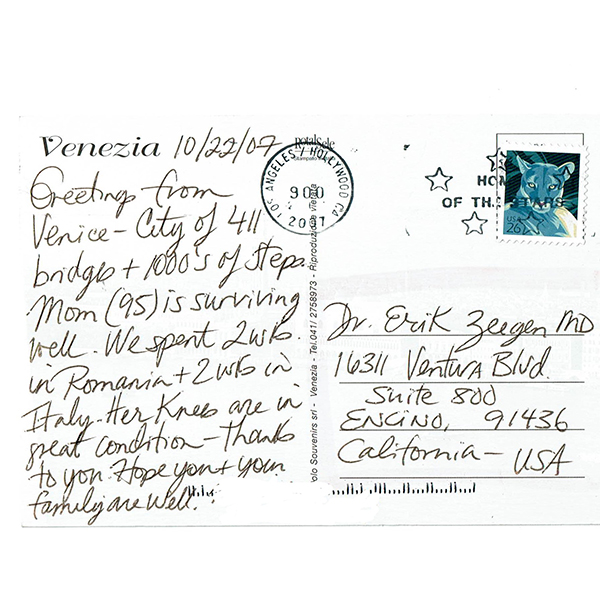 Venezia 10/22/07
Greetings from
Venice - City of 411
bridges + 1000's of steps.
Mom (95) is surviving
well. We spent 2 wks.
in Romania + 2 wks in
Italy. Her Knees are in
great condition - Thanks
to you. Hope you + your
family are well.
LOS ANGELES / HOLLYWOOD CA
900
2007
OF THE STARS
USA
26
olo Souvenirs srl - Venezia - Tel.041/ 2758973 - Riproduzione vietata
Dr. Erik Zeegen MD
16311 Ventura Blvd.
Suite 800
ENCINO, 91436
California - USA